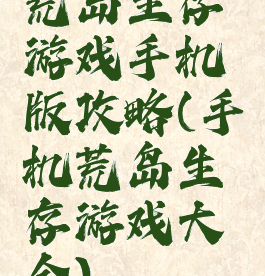 荒岛生存
游戏手机
版攻略(手
机荒岛生
存游戏大
全)